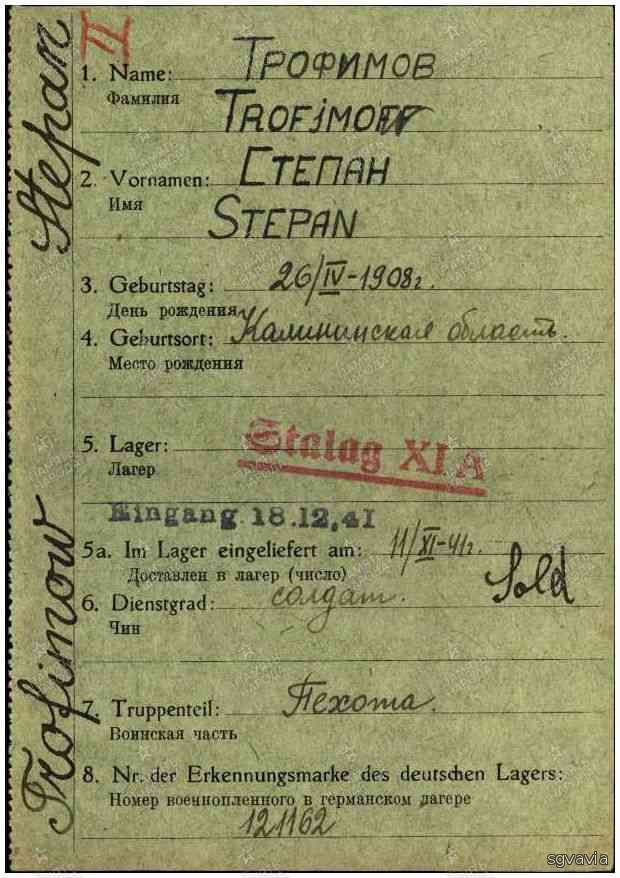 Stepan
Trofimow
II
1. Name: ТРОФИМОВ
Фамилия
TROFiMOFF
2. Vornamen: СТЕПАН
Имя
STEPAN
3. Geburtstag: 26/IV-1908г.
День рождения
4. Geburtsort: Калининская область.
Место рождения
5. Lager: Stalag XI A
Лагер
Eingang 18.12.41
5a. Im Lager eingeliefert am: 11/XI-41г.
Доставлен в лагер (число)
Sold
6. Dienstgrad: солдат.
Чин
7. Truppenteil: Пехота.
Воинская часть
8. Nr. der Erkennungsmarke des deutschen Lagers:
Номер военнопленного в германском лагере
121162
sgvavia